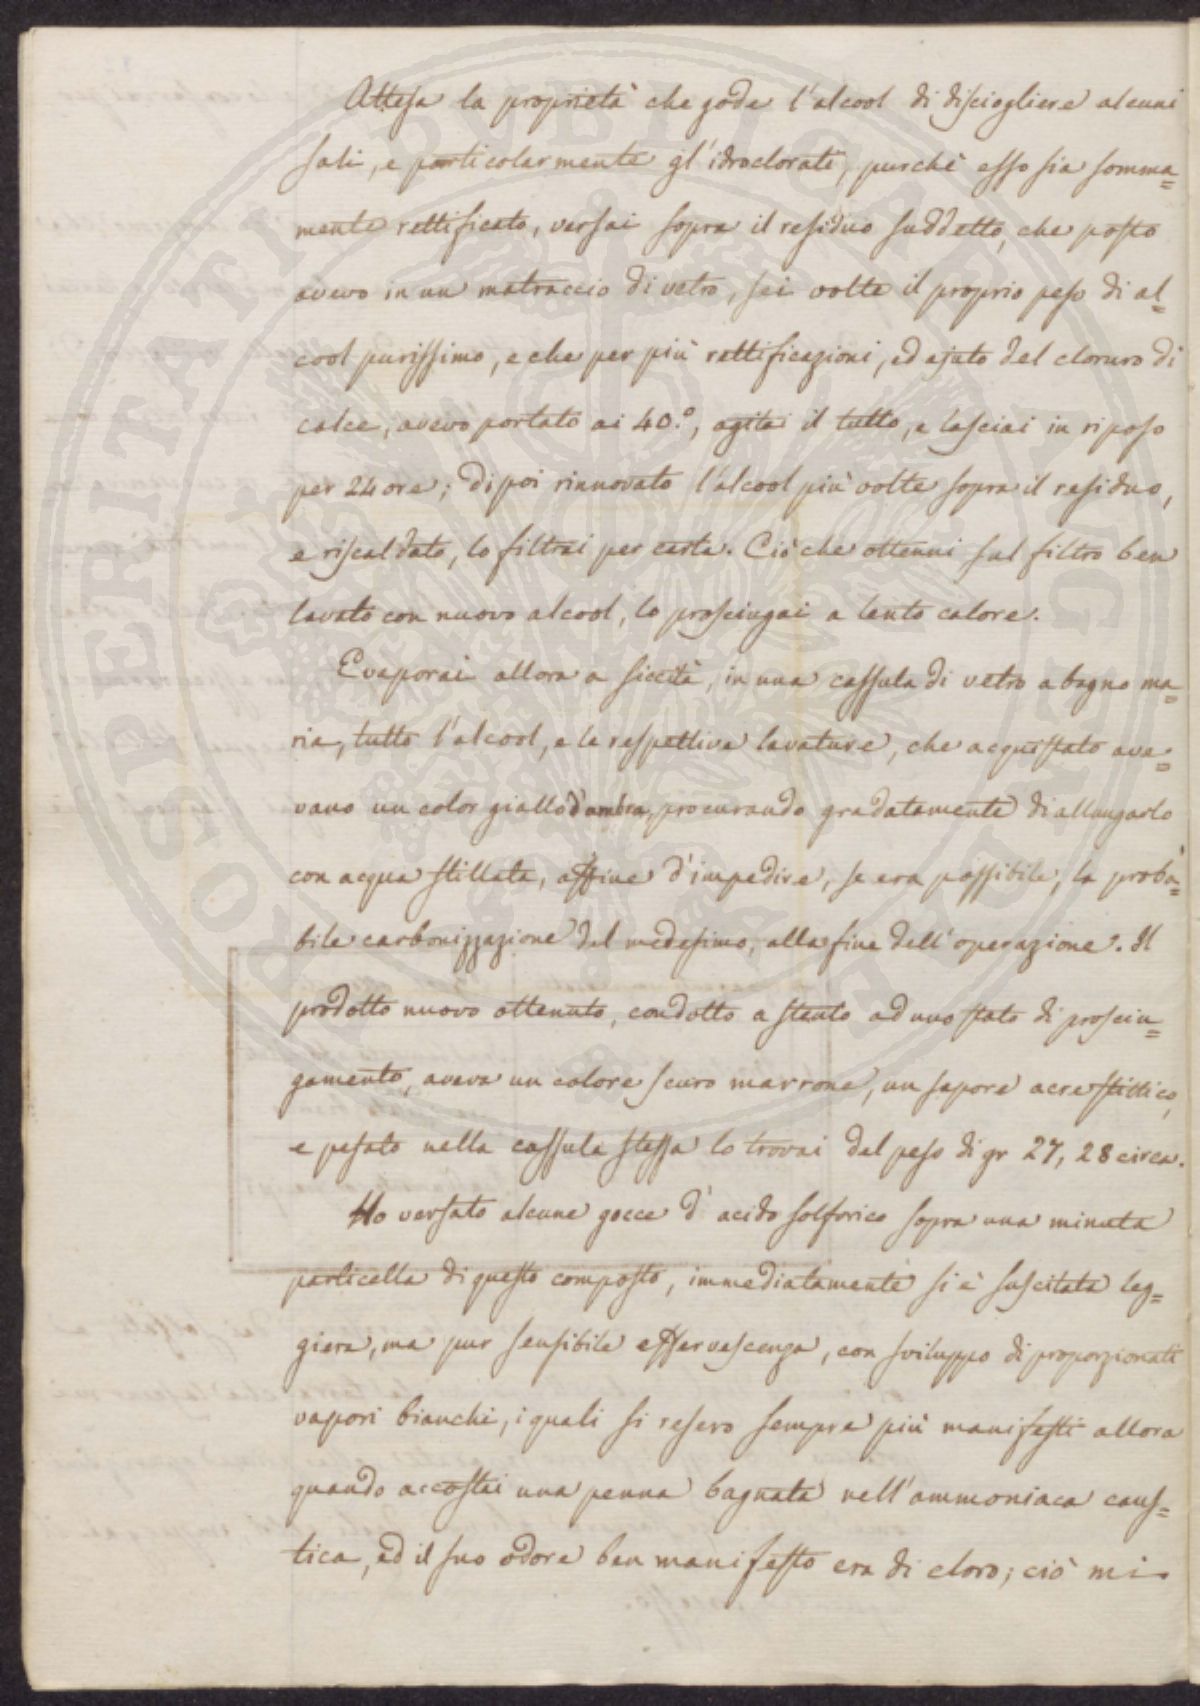 Attesa la proprietà che gode l'alcool di disciogliere alcuni
sali, e particolarmente gl'idroclorati, purchè esso sia somma=
mente rettificato, versai sopra il residuo suddetto, che posto
avevo in un matraccio di vetro, sei volte il proprio peso di al=
cool purissimo, e che per più rettificazioni, ed ajuto del cloruro di
calce, avevo portato ai 40.°, agitai il tutto, e lasciai in riposo
per 24 ore; di poi rinnovato l'alcool più volte sopra il residuo,
e riscaldato, lo filtrai per carta. Ciò che ottenni sul filtro ben
lavato con nuovo alcool, lo prosciugai a lento calore.
Evaporai allora a siccità, in una cassula di vetro a bagno ma=
ria, tutto l'alcool, e le respettive lavature, che acquistato ave=
vano un color giallo d'ambra, procurando gradatamente di allungarlo
con acqua stillata, affine d'impedire, se era possibile, la proba=
bile carbonizzazione del medesimo, alla fine dell'operazione. Il
prodotto nuovo ottenuto, condotto a stento ad uno stato di prosciu=
gamento, aveva un colore scuro marrone, un sapore acre stittico,
e pesato nella cassula stessa lo trovai del peso di gr 27, 28 circa.
Ho versato alcune gocce d'acido solforico sopra una minuta
particella di questo composto, immediatamente si è suscitata leg=
giera, ma pur sensibile effervescenza, con sviluppo di proporzionati
vapori bianchi, i quali si resero sempre più manifesti allora
quando accostai una penna bagnata nell'ammoniaca caus=
tica, ed il suo odore ben manifesto era di cloro; ciò mi
PROSPERITATI PUBLICAE AUGENDAE